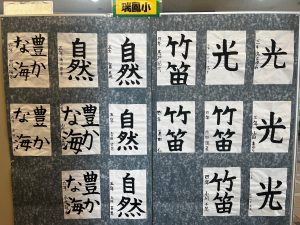 瑞鳳小
光
光
竹笛
自然
自然
豊か
な海
光
竹笛
竹笛
自然
豊か
な海
豊か
な海
光
竹笛
自然
豊か
な海